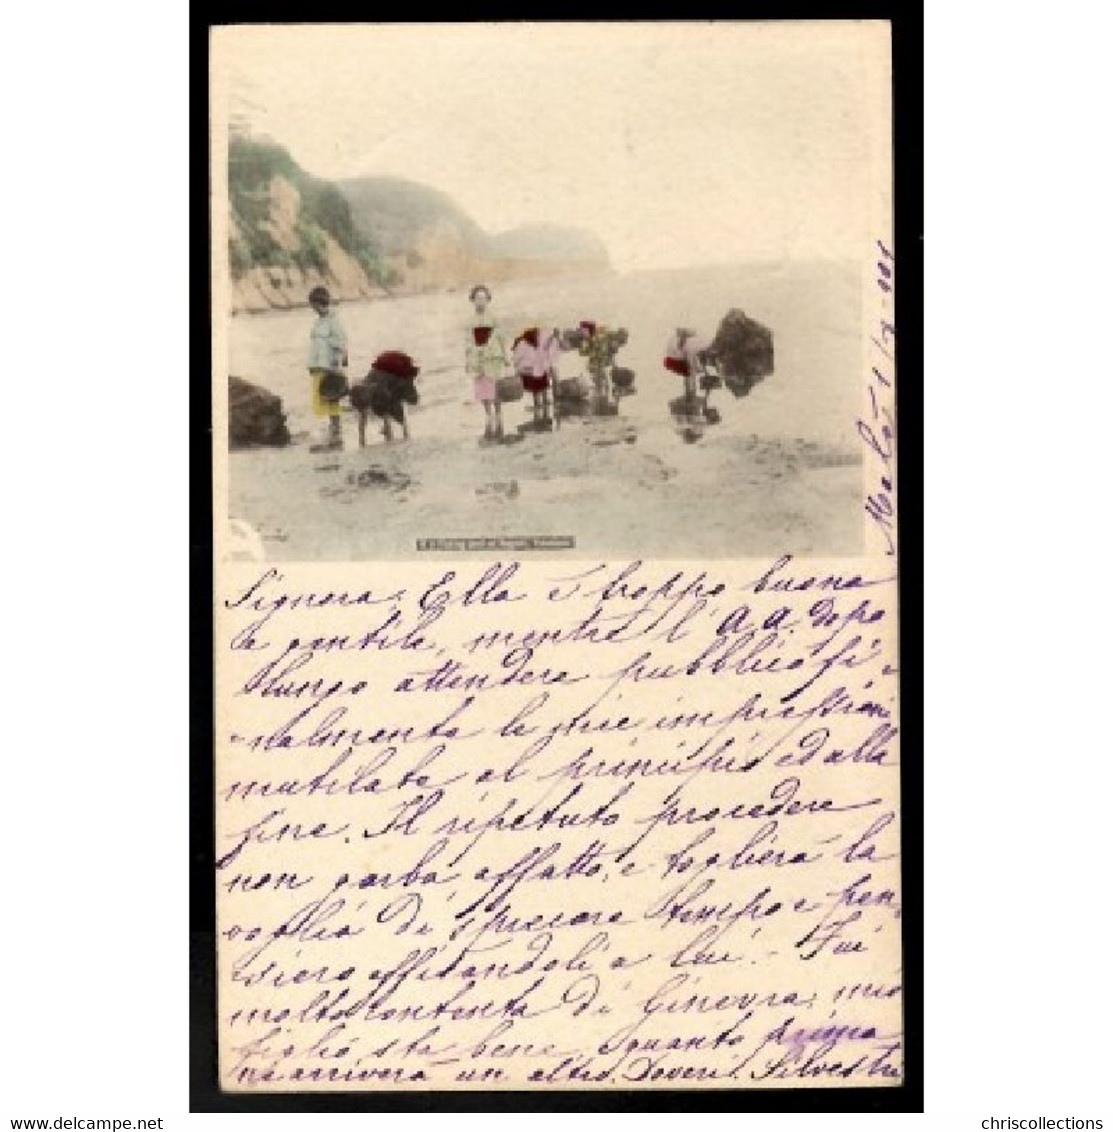 Malo 1/
Signora, Ella è troppo buona
e gentile, mentre l'A.A. dopo
lungo attendere pubblicò fi-
nalmente le mie impressioni
mutilate al principio ed alla
fine. Il ripetuto procedere
non garba affatto, e toglierà la
voglia di sprecare tempo e pen-
siero affidandoli a lui. - Fui
molto contenta di Ginevra, mio
figlio sta bene, e quanto prima
ne arriverà un altro. Doveri. Silvestri
www.delcampe.net
chriscollections